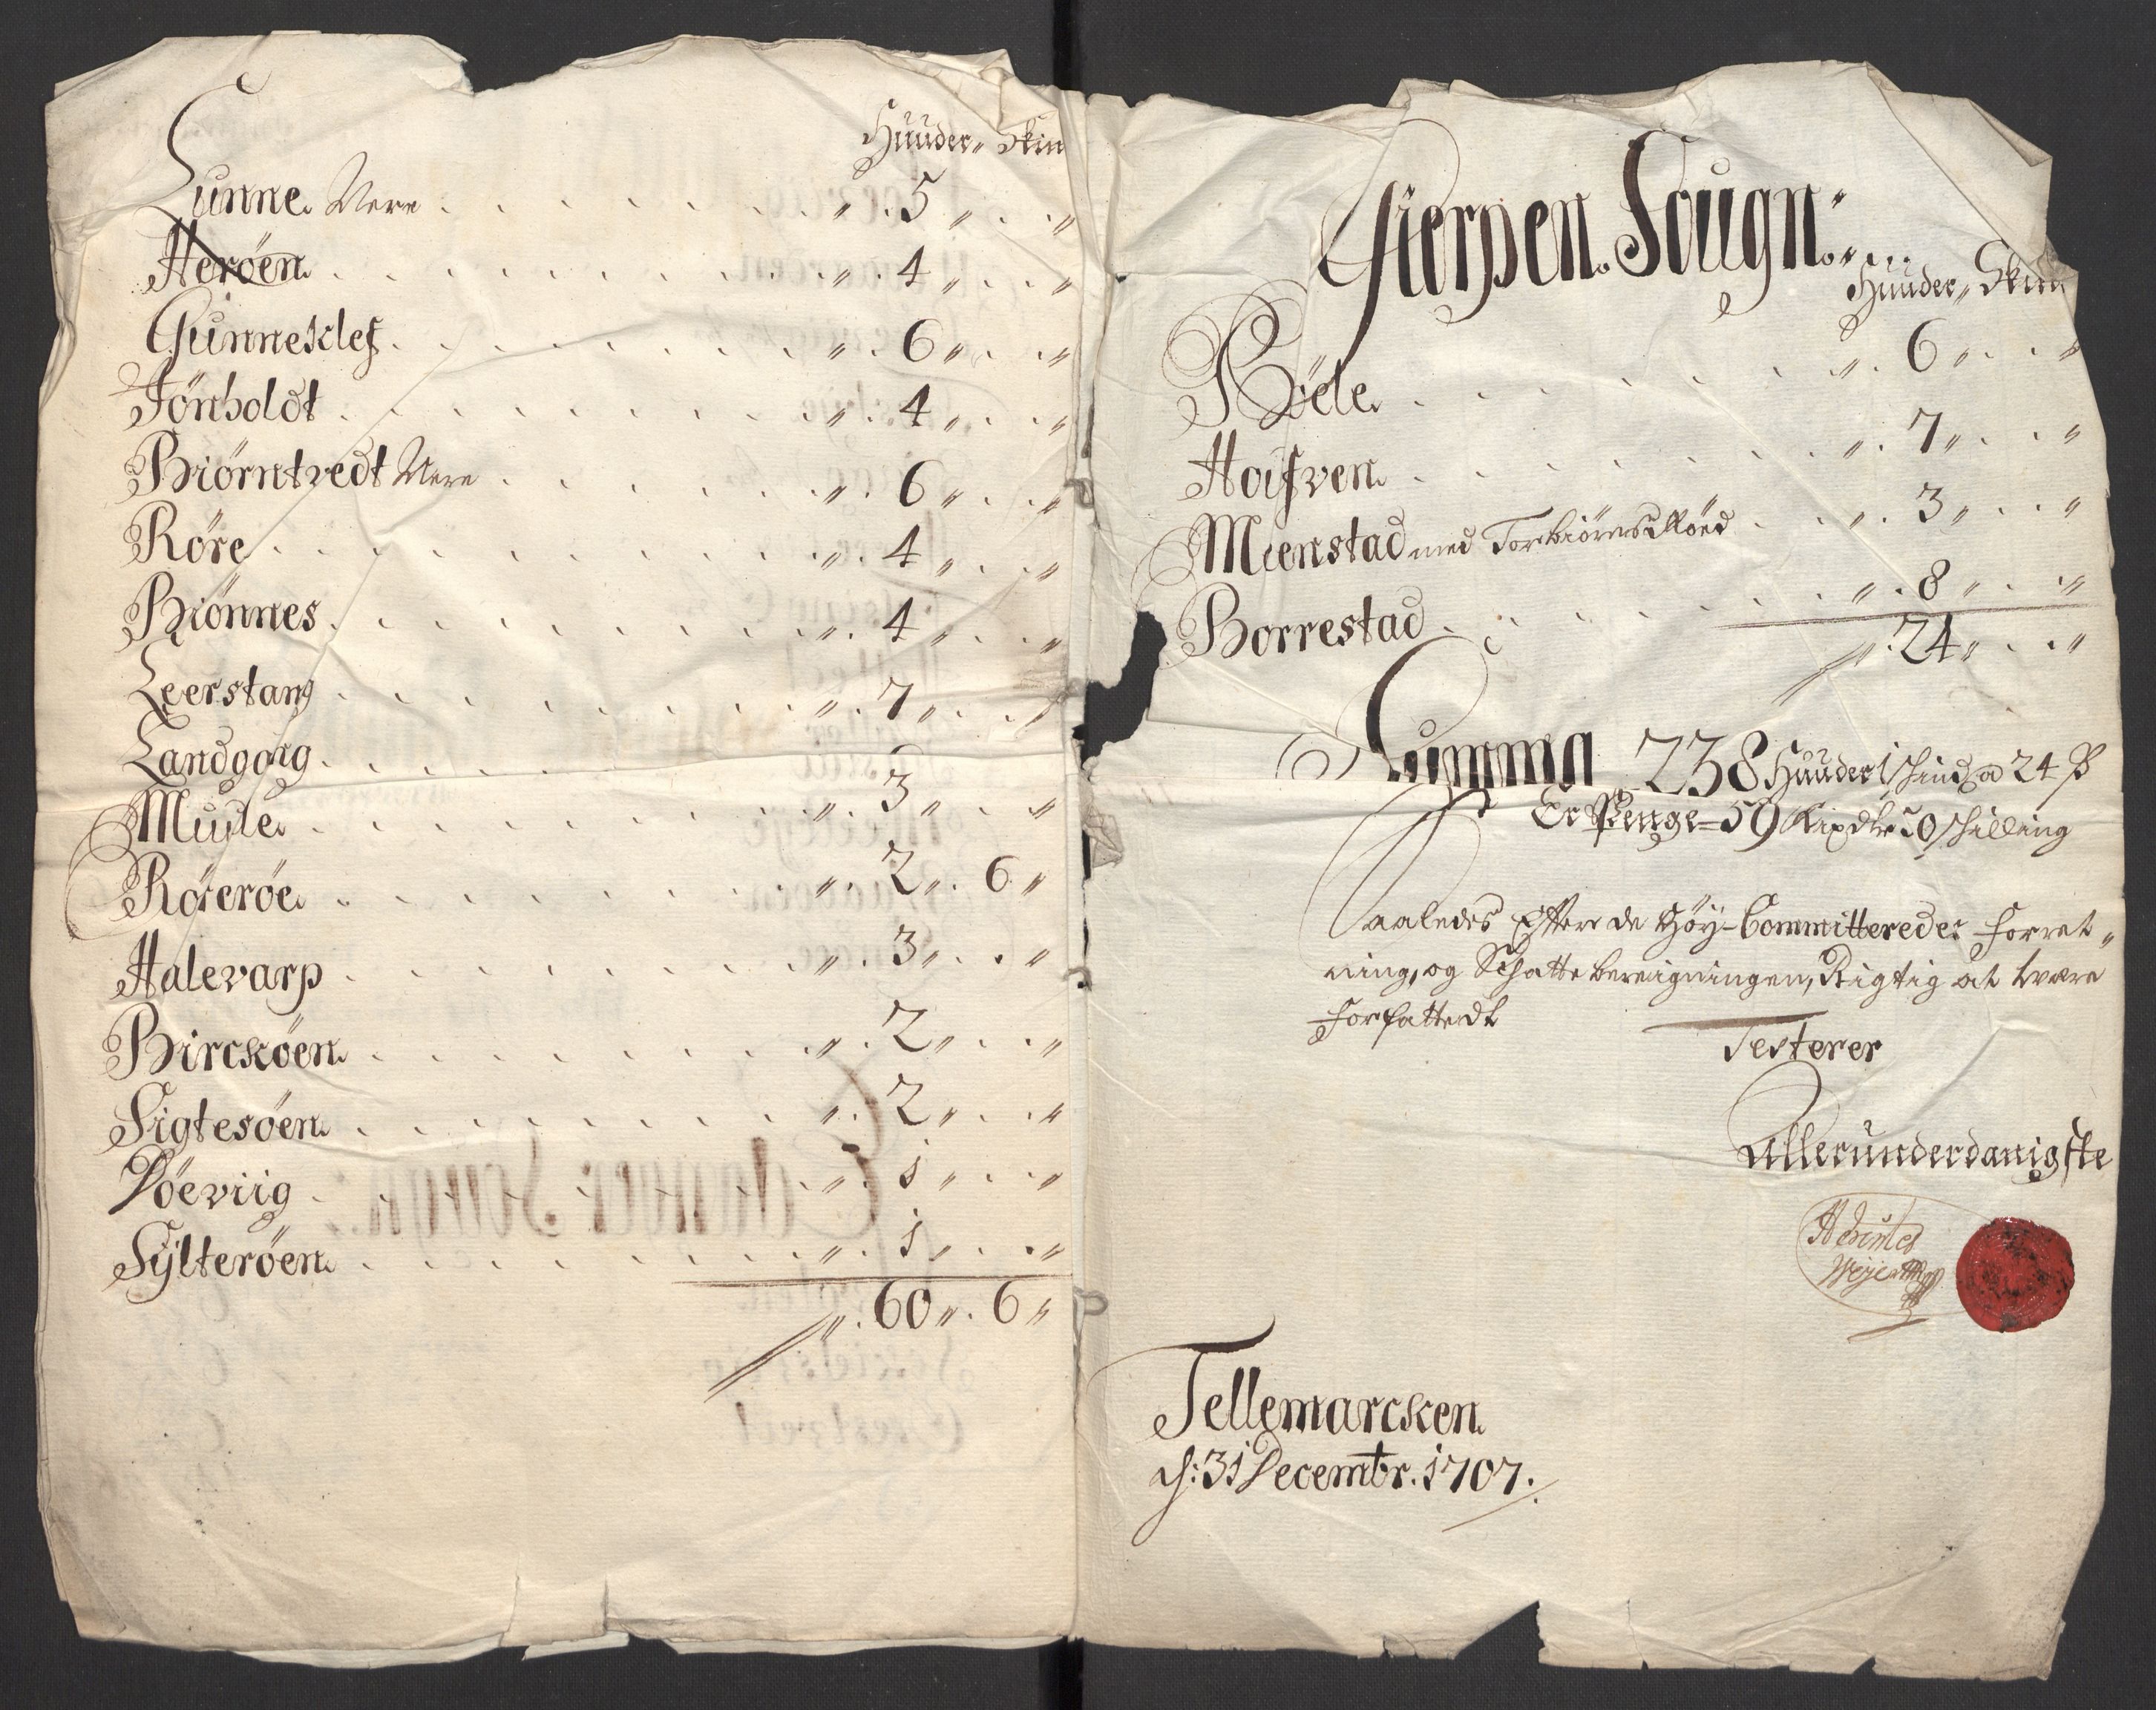 Huuder„ Skin
Lunne Nere . . . . . . . „ . 5 „ . . „
Herøen . . . . . . . . „ . 4 „ . . „
Gunneklef . . . . . . . „ . 6 „ . . „
Jönholdt . . . . . . . . „ . 4 „ . . „
Biørntvedt Nere . . . . . . „ . 6 „ . . „
Røre . . . . . . . . „ . 4 „ . . „
Biönnes . . . . . . . . „ . 4 „ . . „
Leerstang . . . . . . . . „ . 7 „ . . „
Landgang . . . . . . . .
Mule . . . . . . . . „ . 3 „ . . „
Rørerøe . . . . . . . „ . 2 „ . 6 „
Halevarp . . . . . . . „ . 3 „ . . „
Birckøen . . . . . . . „ . 2 „ . . „
Sigtesøen . . . . . . . „ . 2 „ . . „
Døeviig . . . . . . . „ . 1 „ . . „
Sÿlterøen . . . . . . . „ . 1 „ . . „
„ . 60 „ . 6 „
Gierpen Sougn
Huuder„ Skin
Bøle . . . . . . . „ . 6 „ . . „
Hoifven . . . . . . . „ . 7 „ . . „
Mienstad med Torbiørnsröed . . „ . 3 „ . . „
Borrestad . . . . . . . „ . 8 „ . . „
„ . 24 „ . . „
Summa 238 Huuder 1 skind a 24 ß
Er Penge = 59 Rixdlr 50 skilling
Saaledes Efter de Høÿ-Committeredes Forret„
ning, og Schatte bereigningen, Rigtig at være
forfattedt
Testerer
Allerunderdanigste
Tellemarcken
d: 31 Decembr. 1707.